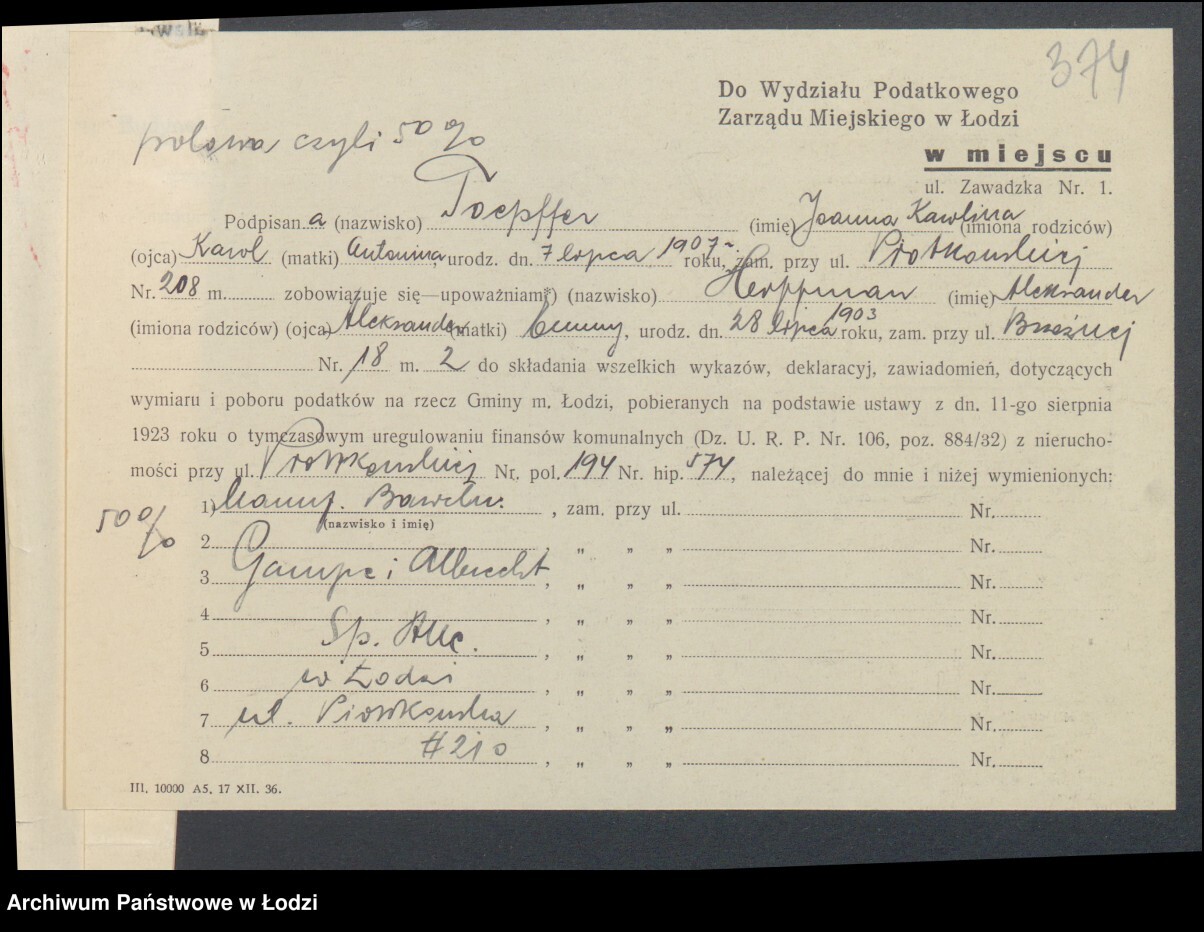 374
Do Wydziału Podatkowego
Zarządu Miejskiego w Łodzi
w miejscu
ul. Zawadzka Nr. 1.
połowa czyli 50 %
Podpisan a (nazwisko) Toepffer (imię) Joanna Karolina (imiona rodziców)
(ojca) Karol (matki) Antonina, urodz. dn. 7 lipca 1907 roku, zam. przy ul. Piotrkowskiej
Nr. 208 m. zobowiązuje się—upoważniam*) (nazwisko) Hoffman (imię) Aleksander
(imiona rodziców) (ojca) Aleksander (matki) Emmy, urodz. dn. 28 lipca 1903 roku, zam. przy ul. Brzeźnej
Nr. 18 m. 2 do składania wszelkich wykazów, deklaracyj, zawiadomień, dotyczących
wymiaru i poboru podatków na rzecz Gminy m. Łodzi, pobieranych na podstawie ustawy z dn. 11-go sierpnia
1923 roku o tymczasowym uregulowaniu finansów komunalnych (Dz. U. R. P. Nr. 106, poz. 884/32) z nierucho-
mości przy ul. Piotrkowskiej Nr. pol. 194 Nr. hip. 574, należącej do mnie i niżej wymienionych:
50 %
1) Manuf. Baweln. , zam. przy ul. Nr.
(nazwisko i imię)
2 , „ „ „ Nr.
3 Gampe i Albrecht , „ „ „ Nr.
4 , „ „ „ Nr.
5 Sp. Akc. , „ „ „ Nr.
6 w Łodzi , „ „ „ Nr.
7 ul. Piotrkowska , „ „ „ Nr.
8 # 210 , „ „ „ Nr.
III. 10000 A5. 17 XII. 36.
Archiwum Państwowe w Łodzi